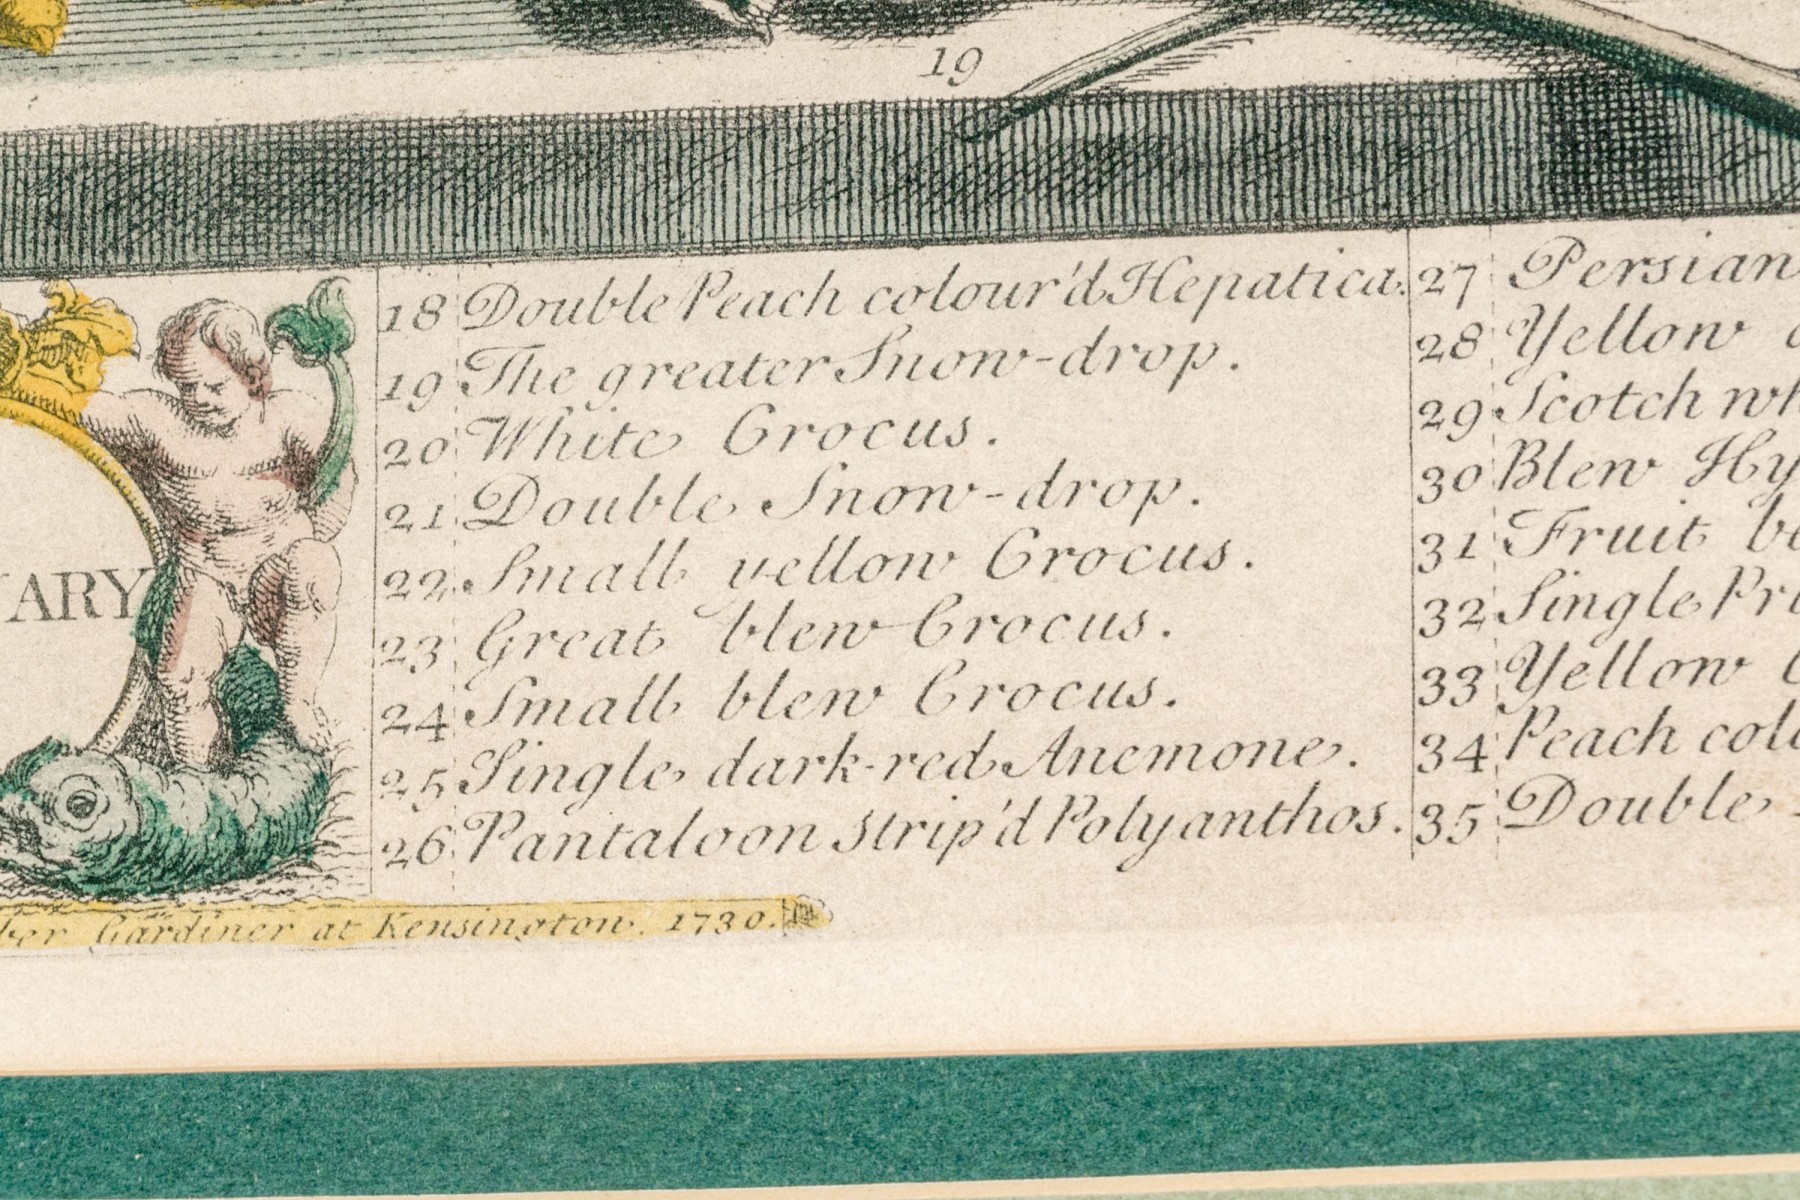 19
ARY
18 Double Peach colour'd Hepatica.
19 The greater Snow-drop.
20 White Crocus.
21 Double Snow-drop.
22 Small yellow Crocus.
23 Great blew Crocus.
24 Small blew Crocus.
25 Single dark-red Anemone.
26 Pantaloon Strip'd Polyanthos.
27 Persian
28 Yellow
29 Scotch wh
30 Blew Hy
31 Fruit be
32 Single Pri
33 Yellow
34 Peach colo
35 Double
ber Gardiner at Kensington. 1730.